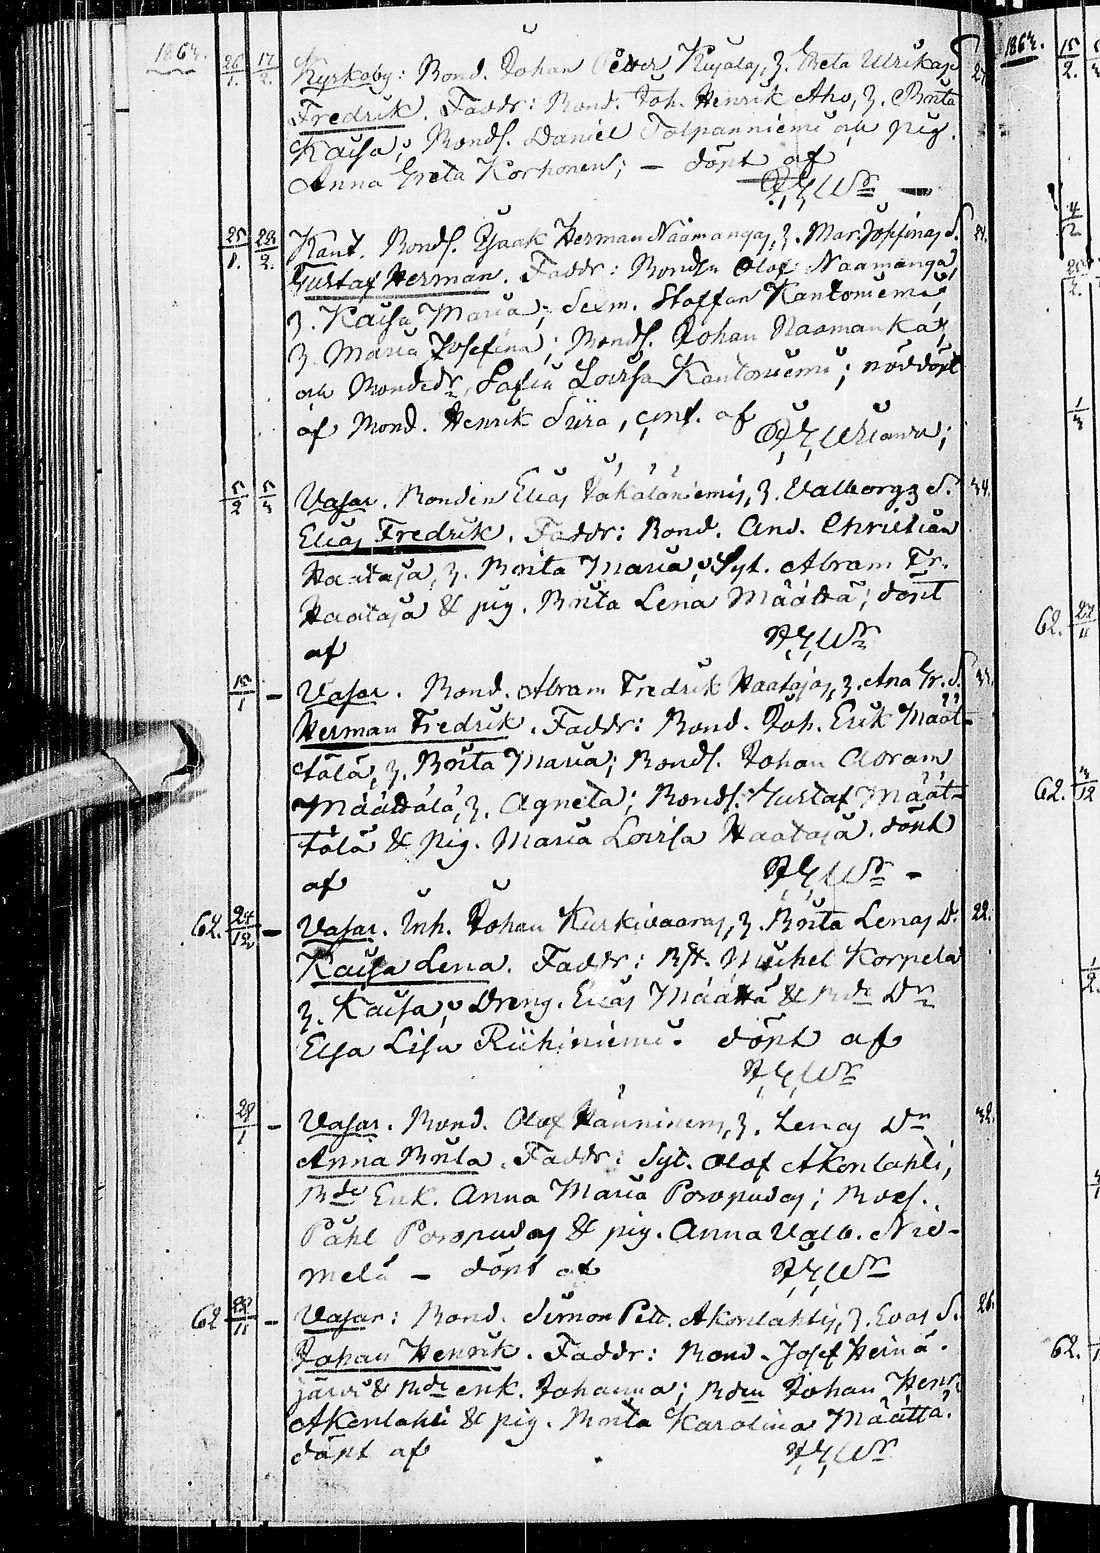 1863.
26/1. 17/2. Kyrkoby: Bond. Johan Petter Kujalas, H. Greta Ulrikas S.
Fredrik. Faddr: Bond. Joh. Henrik Aho, H. Brita
Kaisa; Bonds. Daniel Tolpanniemi och pig.
Anna Greta Korhonen; — döpt af
25/1. 22/2. Kant. Bonds. Isaak Herman Näämangas, H. Mar. Josfinas S.
Gustaf Herman. Faddr: Bonden Olof Naamanga,
H. Kaisa Maria; Sexm. Staffan Kantoniemi,
H. Maria Josefina; Bonds. Johan Naamanka;
och Bondedr. Sofia Lovisa Kantoniemi; nöddöpt
af Bond. Henrik Siira, conf. af
5/2 5/3 Vasar. Bonden Elias Jokaläniemis, H. Valborgs S. 34.
Elias Fredrik. Faddr: Bond. And. Christian
Haataja, H. Brita Maria; Syt. Abram Fr.
Haataja & pig. Brita Lena Määttä; döpt
af
15/1 – Vasar. Bond. Abram Fredrik Haatajas, H. Ana Gr. S.
Herman Fredrik. Faddr: Bond. Joh. Erik Määt-
tälä, H. Brita Maria; Bonds. Johan Abram
Määttälä, H. Agneta; Bonds. Gustaf Määt-
tälä & pig. Maria Lovisa Haataja. döpt
af
62. 24/12 – Vasar. Inh. Johan Kurkivaaras, H. Brita Lenas D. 22.
Kaisa Lena. Faddr: Michel Korpela
H. Kaisa; Dreng. Elias Määttä & Bde Dr
Elsa Lisa Riihiniemi. döpt af
29/1 – Vasar. Bond. Olof Hänninens, H. Lenas Dr 32.
Anna Brita. Faddr: Syt. Olof Akonlahti,
Bde Enk. Anna Maria Poropudas; Bds.
Påhl Poropudas & pig. Anna Valb. Nie-
melä — döpt af
62 22/11 – Vasar: Bond. Simon Pett. Akonlahtis, H. Evas S. 26.
Johan Henrik. Faddr: Bond. Josef Heinä-
järvi & Bde enk. Johanna; Bden Johan Henr.
Akonlahti & pig. Brita Karolina Määttä.
döpt af
1863.
15/2.
4/2
62. 27/11
62. 3/12
62.